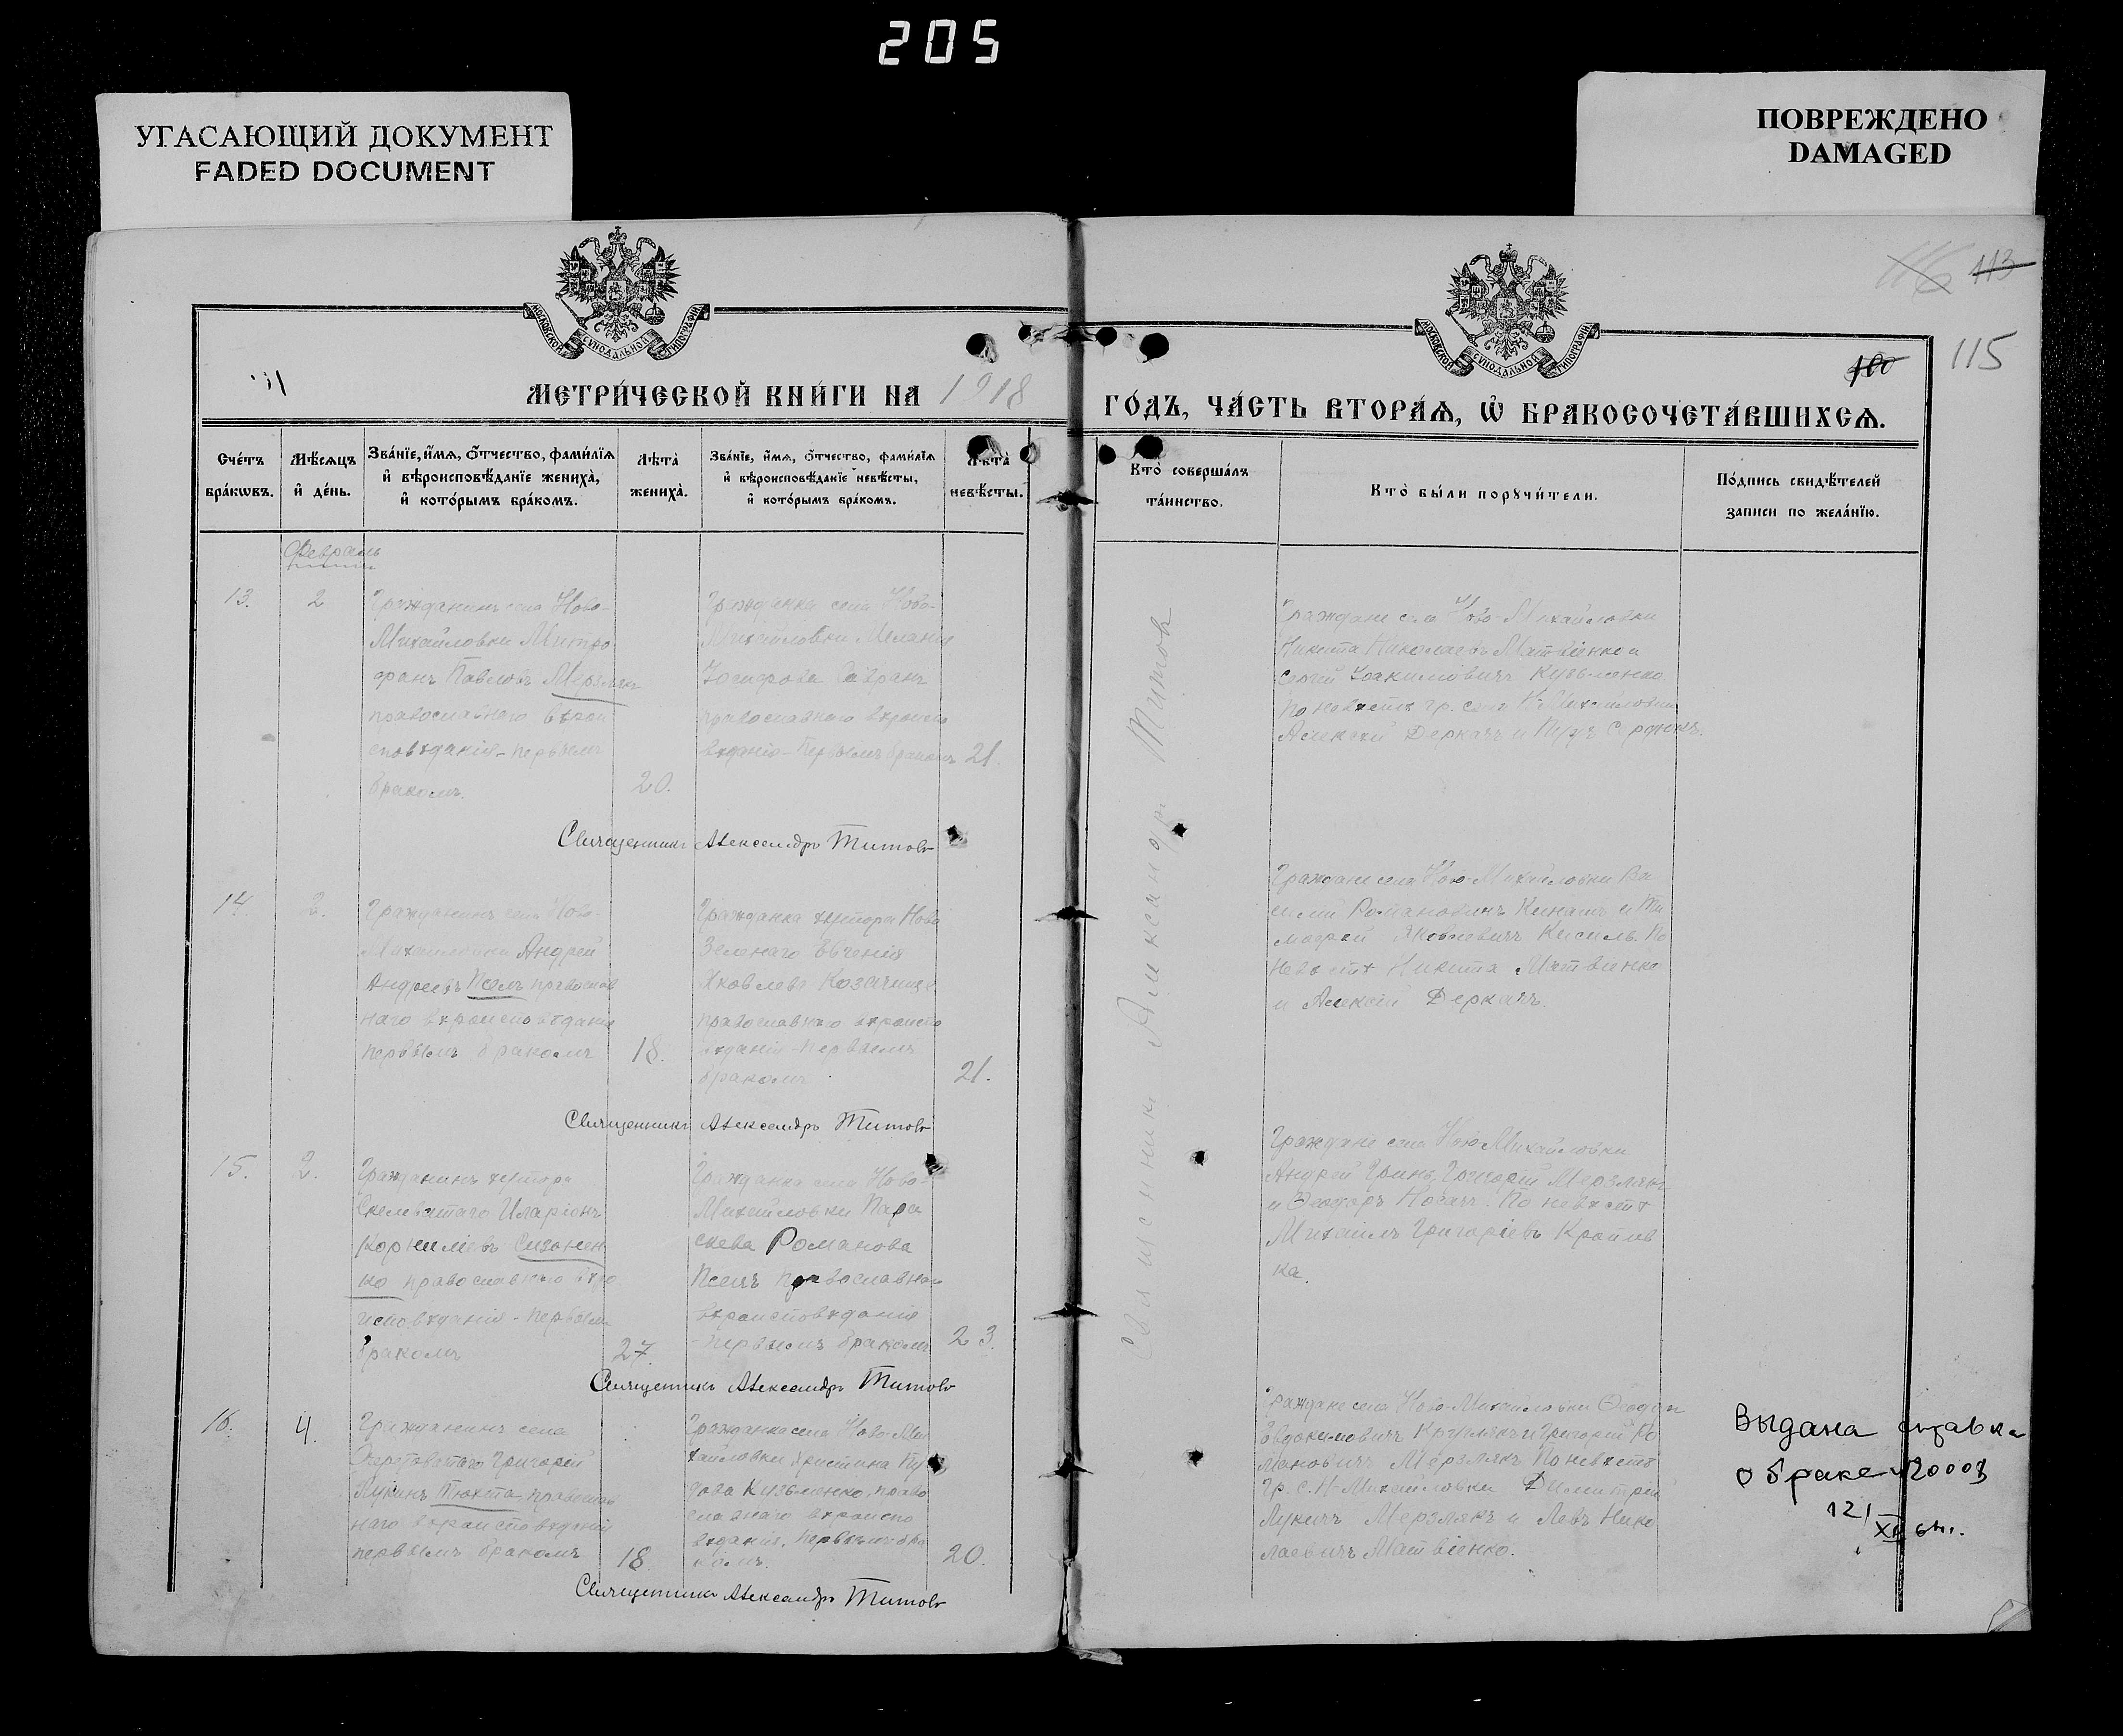 205
УГАСАЮЩИЙ ДОКУМЕНТ
FADED DOCUMENT
ПОВРЕЖДЕНО
DAMAGED
МОСКОВСКОЙ СѴНОДАЛЬНОЙ ТИПОГРАФІИ
МОСКОВСКОЙ СѴНОДАЛЬНОЙ ТИПОГРАФІИ
116 113
100 115
МЕТРИ́ЧЕСКОЙ КНИ́ГИ НА 1918
ГО́ДЪ, ЧА́СТЬ ВТОРА́Ѧ, Ѡ҆ БРАКОСОЧЕТА́ВШИХСѦ.
Сче́тъ бра́кѡвъ.
Мѣ́сѧцъ и҆ де́нь.
Зва́нїе, и҆́мѧ, ѻ҆́тчество, фами́лїѧ
и҆ вѣроисповѣ́данїе жениха̀,
и҆ кото́рымъ бра́комъ.
Лѣта̀ жениха̀.
Зва́нїе, и҆́мѧ, ѻ҆́тчество, фами́лїѧ
и҆ вѣроисповѣ́данїе невѣ́сты,
и҆ кото́рымъ бра́комъ.
Лѣта̀ невѣ́сты.
Кто̀ соверша́лъ та́инство.
Кто̀ бы́ли порꙋчи́тели.
По́дпись свидѣ́телей
записи по жела́нїю.
Февраль
13.
2
Гражданинъ села Ново-
Михайловки Митро
фанъ Павловъ Мерзлякъ
православнаго вѣрои
сповѣданія - первымъ
бракомъ.
20.
Гражданка села Ново-
Михайловки Меланія
православнаго вѣроиспо
вѣданія - первымъ бракомъ
21.
Граждане села Ново-Михайловки
Никита Николаевъ Матвіенко и
Сергей Іоакимовичъ Кузьменко
По невѣстѣ гр. села Н-Михайловки
Алексѣй Деркачъ и
Священникъ Александръ Титовъ
14.
2.
Гражданинъ села Ново-
Михайловки Андрей
Андреевъ Псёлъ православ
наго вѣроисповѣданія
первымъ бракомъ
18.
Гражданка хутора Ново
Зеленаго Евгенія
Яковлева
православнаго вѣроиспо
вѣданія - первымъ
бракомъ
21.
Граждане села Ново-Михайловки Ва
силій Романовичъ Кинашъ и Ти
мофей Яковлевичъ Кисиль. По
невѣстѣ Никита Матвіенко
и Алексѣй Деркачъ.
Священникъ Александръ Титовъ
15.
2.
Гражданинъ хутора
Скелеватаго Иларіонъ
Корниліевъ Сизонен
ко православнаго вѣро
исповѣданія - первымъ
бракомъ
27.
Гражданка села Ново-
Михайловки Пара
скева Романова
Псёлъ православнаго
вѣроисповѣданія
- первымъ бракомъ
23.
Граждане села Ново Михайловки
Андрей Гринь, Григорій Мерзлякъ
и Ѳеодоръ Носачъ. По невѣстѣ
Михаилъ Григорьевъ Кропив
ка.
Священникъ Александръ Титовъ
16.
4.
Гражданинъ села
Григорій
Лукинъ Тюхта православ
наго вѣроисповѣданія
первымъ бракомъ
18
Гражданка села Ново-Ми
хайловки Христина
Кузьменко, право
славнаго вѣроиспо
вѣданія, первымъ бра
комъ.
20.
Граждане села Ново-Михайловки Ѳеодоръ
Евдокимовичъ и Григорій Ро
мановичъ Мерзлякъ По невѣстѣ
гр. с. Н-Михайловки Димитрій
Лукичъ Мерзлякъ и Левъ Нико
лаевичъ Матвіенко.
Священникъ Александръ Титовъ
Священникъ Александръ Титовъ
Выдана справка
о браке